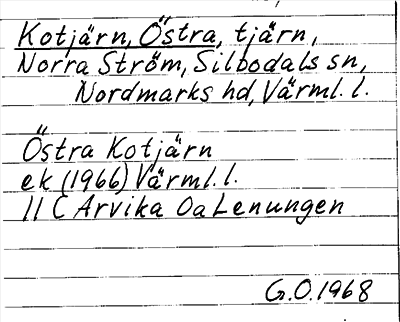 Kotjärn, Östra, tjärn,
Norra Ström, Silbodals sn,
Nordmarks hd, Värml. l.
Östra Kotjärn
ek (1966) Värml. l.
11 C Arvika Oa Lenungen
G.O. 1968